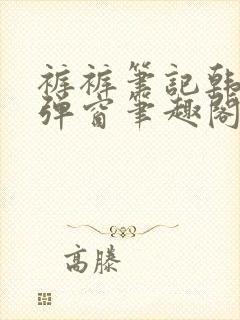 裤裤笔記韩
弹窗笔趣阁
高滕